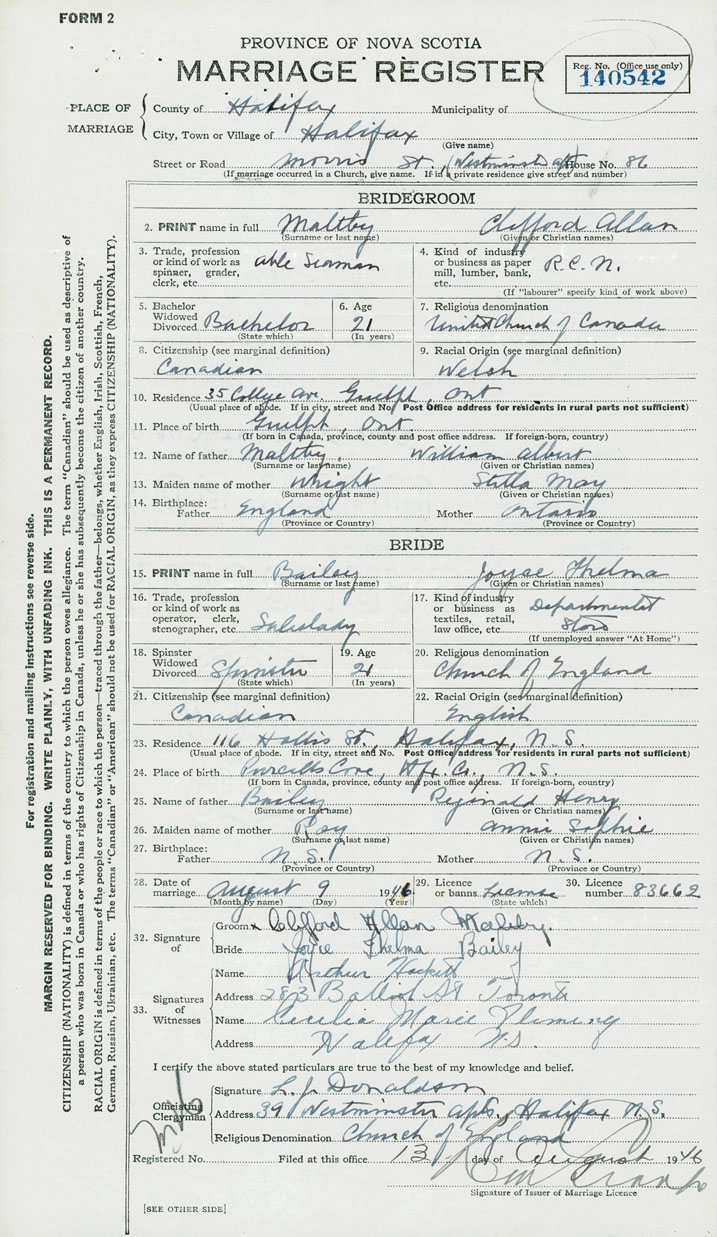 FORM 2
PROVINCE OF NOVA SCOTIA
MARRIAGE REGISTER
Reg. No. (Office use only)
140542
PLACE OF MARRIAGE
County of Halifax Municipality of
City, Town or Village of Halifax
(Give name)
Street or Road Morris St. (Westminster apts) House No. 86
(If marriage occurred in a Church, give name. If in a private residence give street and number)
BRIDEGROOM
2. PRINT name in full Maltby Clifford Allan
(Surname or last name) (Given or Christian names)
3. Trade, profession or kind of work as spinner, grader, clerk, etc. Able Seaman
4. Kind of industry or business as paper mill, lumber, bank, etc. R.C.N.
(If "labourer" specify kind of work above)
5. Bachelor Widowed Divorced Bachelor
(State which)
6. Age 21
(In years)
7. Religious denomination
United Church of Canada
8. Citizenship (see marginal definition)
Canadian
9. Racial Origin (see marginal definition)
Welsh
10. Residence 35 College Av. Guelph, Ont
(Usual place of abode. If in city, street and No. Post Office address for residents in rural parts not sufficient)
11. Place of birth Guelph, Ont.
(If born in Canada, province, county and post office address. If foreign-born, country)
12. Name of father Maltby, William Albert
(Surname or last name) (Given or Christian names)
13. Maiden name of mother Wright Stella May
(Surname or last name) (Given or Christian names)
14. Birthplace: Father England Mother Ontario
(Province or Country) (Province or Country)
BRIDE
15. PRINT name in full Bailey Joyce Thelma
(Surname or last name) (Given or Christian names)
16. Trade, profession or kind of work as operator, clerk, stenographer, etc. Saleslady
17. Kind of industry or business as textiles, retail, law office, etc. Departmental Store
(If unemployed answer "At Home")
18. Spinster Widowed Divorced Spinster
(State which)
19. Age 21
(In years)
20. Religious denomination
Church of England
21. Citizenship (see marginal definition)
Canadian
22. Racial Origin (see marginal definition)
English
23. Residence 116 Hollis St., Halifax, N.S.
(Usual place of abode. If in city, street and No. Post Office address for residents in rural parts not sufficient)
24. Place of birth Purcells Cove, Hfx. Co., N.S.
(If born in Canada, province, county and post office address. If foreign-born, country)
25. Name of father Bailey Reginald Henry
(Surname or last name) (Given or Christian names)
26. Maiden name of mother Ray Annie Sophie
(Surname or last name) (Given or Christian names)
27. Birthplace: Father N.S. Mother N.S.
(Province or Country) (Province or Country)
28. Date of marriage August 9 1946
(Month by name) (Day) (Year)
29. Licence or banns License
(State which)
30. Licence number 83662
32. Signature of
Groom x Clifford Allan Maltby.
Bride Joyce Thelma Bailey
33. Signatures of Witnesses
Name Arthur Hackett
Address 283 St Toronto
Name Cecilia Marie Fleming
Address Halifax N.S.
I certify the above stated particulars are true to the best of my knowledge and belief.
Officiating Clergyman
Signature L. J. Donaldson
Address 39 Westminster apts., Halifax N.S.
Religious Denomination Church of England
Registered No. Filed at this office 13 day of August 1946
Signature of Issuer of Marriage Licence
[SEE OTHER SIDE]
For registration and mailing instructions see reverse side.
MARGIN RESERVED FOR BINDING. WRITE PLAINLY, WITH UNFADING INK. THIS IS A PERMANENT RECORD.
CITIZENSHIP (NATIONALITY) is defined in terms of the country to which the person owes allegiance. The term "Canadian" should be used as descriptive of
a person who was born in Canada or who has rights of Citizenship in Canada, unless he or she has subsequently become the citizen of another country.
RACIAL ORIGIN is defined in terms of the people or race to which the person—traced through the father—belongs, whether English, Irish, Scottish, French,
German, Russian, Ukrainian, etc. The terms "Canadian" or "American" should not be used for RACIAL ORIGIN, as they express CITIZENSHIP (NATIONALITY).